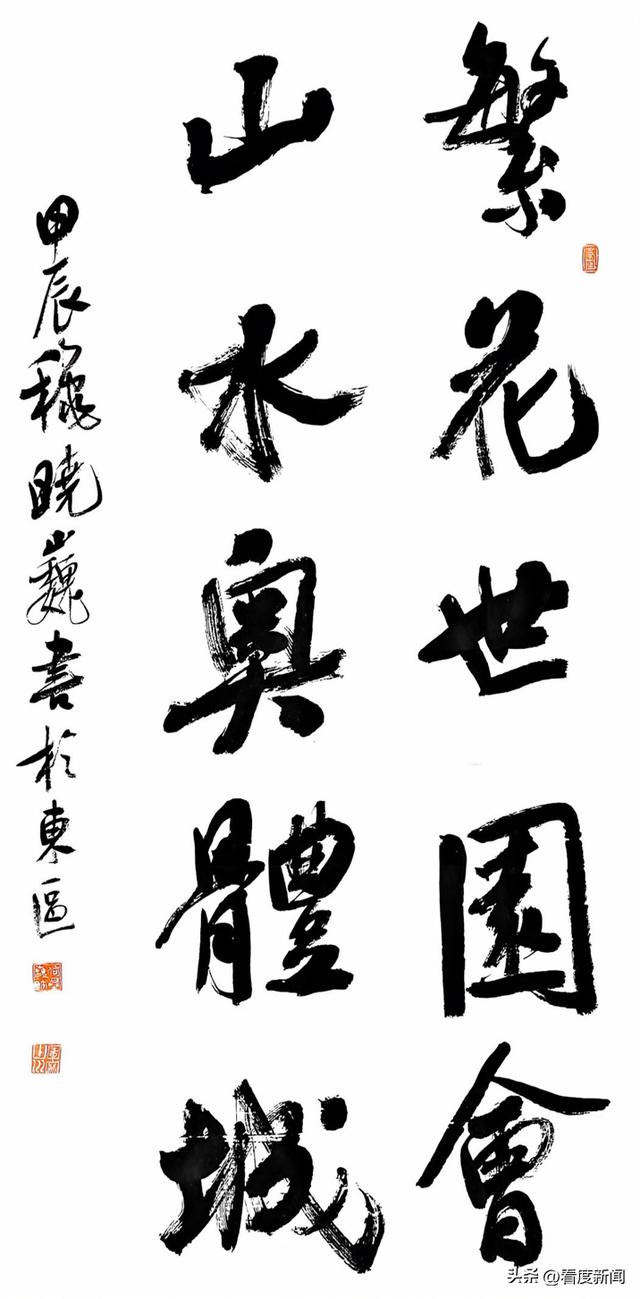 繁花世園會
山水奧體城
甲辰穐曉巍書於東區
头条 @看度新闻